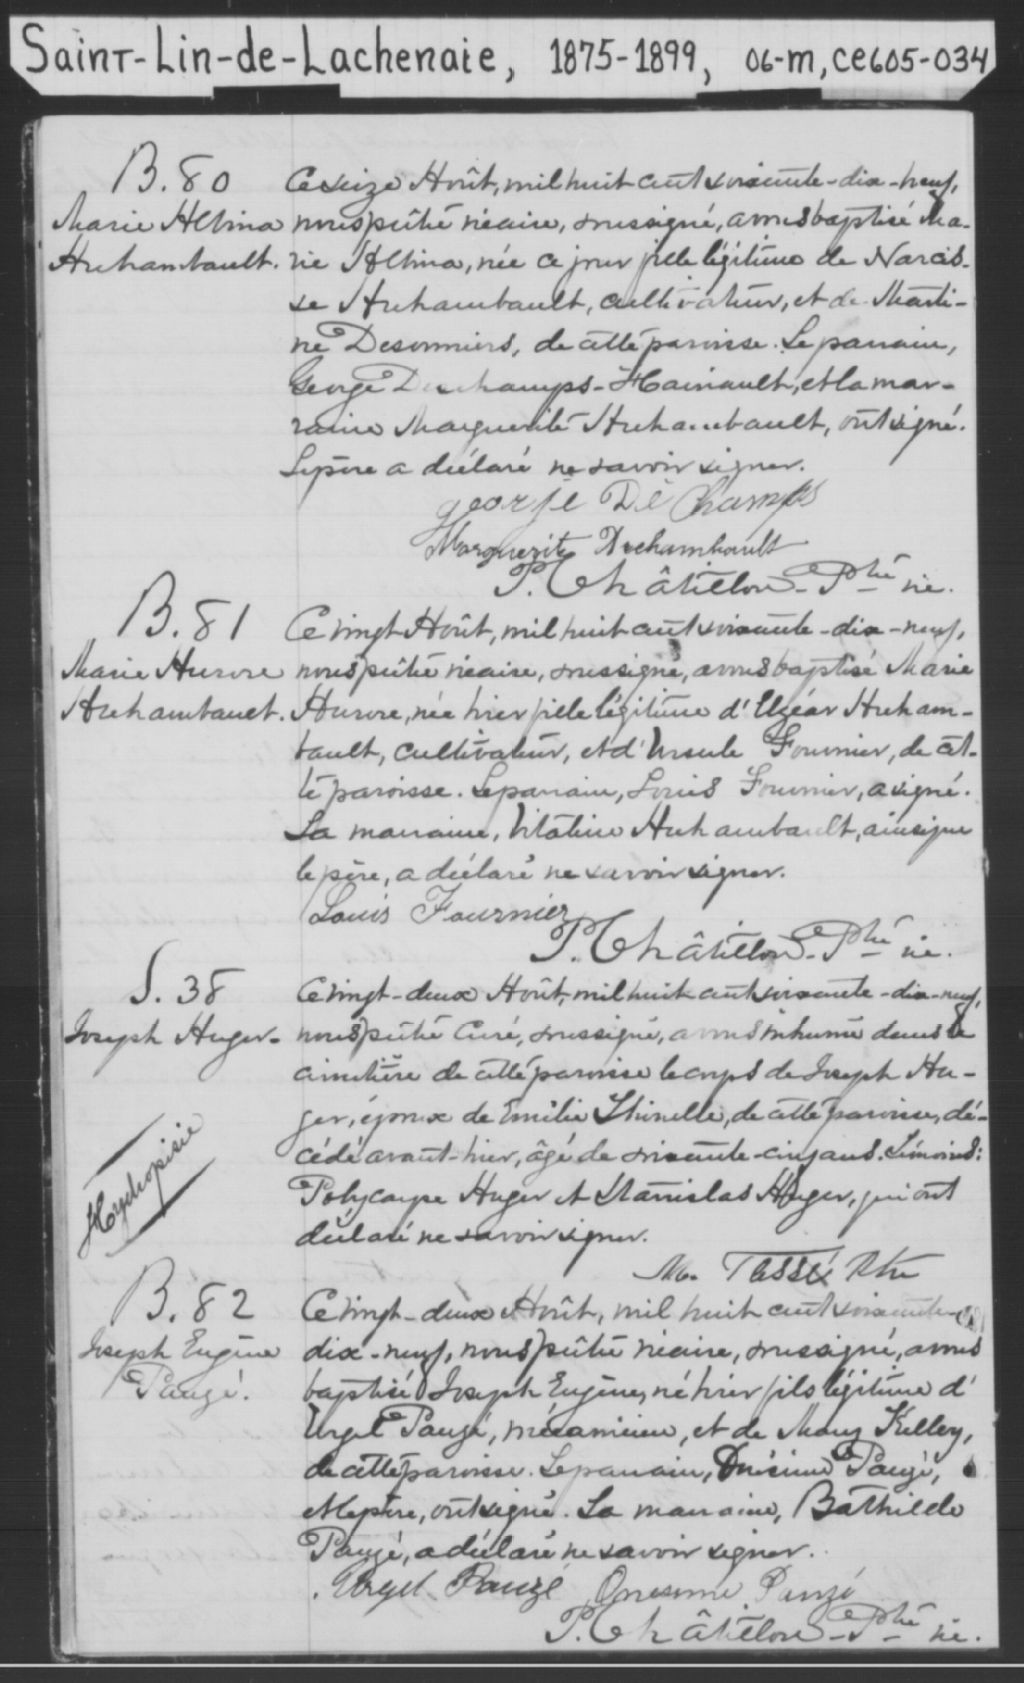 Saint-Lin-de-Lachenaie, 1875-1899, 06-m, CE605-034
B. 80
Marie Albina
Archambault.
Ce seize Août, mil huit cent soixante-dix-neuf,
nous prêtre vicaire, soussigné, avons baptisé Ma-
rie Albina, née ce jour fille légitime de Narcis-
se Archambault, cultivateur, et de Marti-
ne Desormiers, de cette paroisse. Le parrain,
George Deschamps-Hainault, et la mar-
raine Marguerite Archambault, ont signé.
Le père a déclaré ne savoir signer.
georje De Champs
Marguerite Archambault
P. Châtillon Ptre vic.
B. 81
Marie Aurore
Archambault.
Ce vingt Août, mil huit cent soixante-dix-neuf,
nous prêtre vicaire, soussigné, avons baptisé Marie
Aurore, née hier fille légitime d'Elzéar Archam-
bault, cultivateur, et d'Ursule Fournier, de cet-
te paroisse. Le parrain, Louis Fournier, a signé.
La marraine, Vitaline Archambault, ainsi que
le père, a déclaré ne savoir signer.
Louis Fournier
P. Châtillon Ptre vic.
S. 38
Joseph Auger.
Hydropisie
Ce vingt-deux Août, mil huit cent soixante-dix-neuf,
nous prêtre Curé, soussigné, avons inhumé dans le
cimetière de cette paroisse le corps de Joseph Au-
ger, époux de Emilie Thinelle, de cette paroisse, dé-
cédé avant-hier, âgé de soixante-cinq ans. Témoins:
Polycarpe Auger et Stanislas Auger, qui ont
déclaré ne savoir signer.
M. Tassé Ptre
B. 82
Joseph Eugène
Pauzé.
Ce vingt-deux Août, mil huit cent soixante-
dix-neuf, nous prêtre vicaire, soussigné, avons
baptisé Joseph Eugène, né hier fils légitime d'
Urgel Pauzé, mécanicien, et de Mary Kelley,
de cette paroisse. Le parrain, Onésime Pauzé,
et le père, ont signé. La marraine, Bathilde
Pauzé, a déclaré ne savoir signer.
Urgel Pauzé Onesime Pauzé
P. Châtillon Ptre vic.